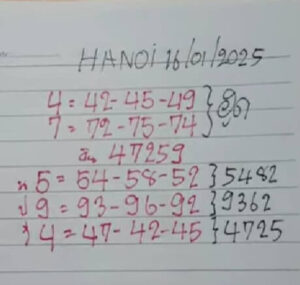 HANOI 16/01/2025
4 = 42-45-49
7 = 72-75-74
47259
5 = 54-58-52 } 5482
9 = 93-96-92 } 9362
4 = 47-42-45 } 4725